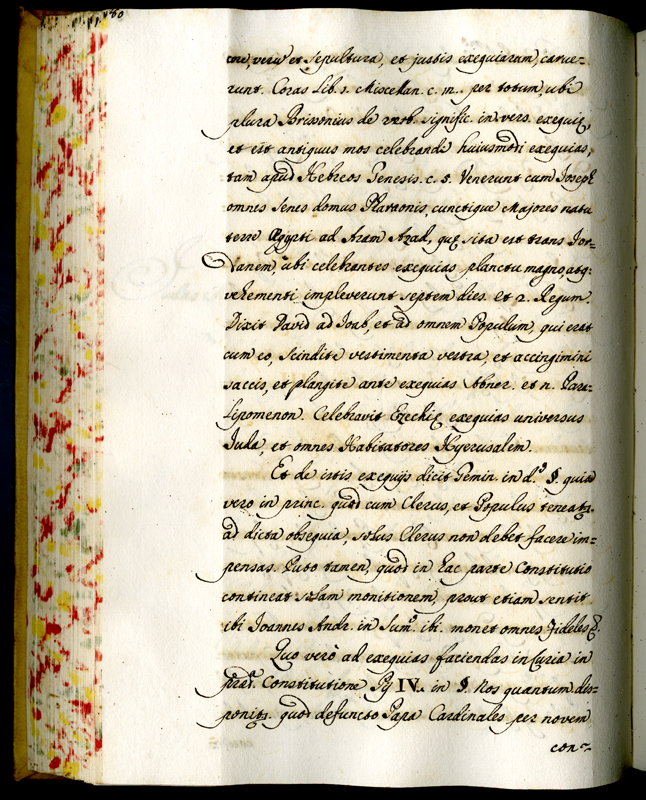 80
et sepultura, et justis exequiarum, carue-
runt. Coras Lib. 1. Miscellan. c. m. per totum, ubi
plura Brissonius de verb. signific. in vers. exequię,
et est antiquus mos celebrandi huiusmodi exequias,
tam apud Hebreos Genesis. c. 5. Venerunt cum Joseph
omnes senes domus Pharaonis, cunctique Majores natu
terre Egypti ad Aram Azad, quę sita est trans Jor-
danem, ubi celebrantes exequias planctu magno, atq:
vehementi impleverunt septem dies. et 2. Regum.
Dixit David ad Joab, et ad omnem Populum, qui erat
cum eo, Scindite vestimenta vestra, et accingimini
saccis, et plangite ante exequias Abner. et n. Para-
lipomenon. Celebravit Ezechię exequias universus
Juda, et omnes Habitatores Hyerusalem.
Et de istis exequijs dicit Gemin. in d.º §. quia
vero in princ. quòd cum Clerus, et Populus teneatur
ad dicta obsequia, solus Clerus non debet facere im-
pensas. Puto tamen, quod in hac parte Constitutio
contineat solam monitionem, prout etiam sentit
ibi Joannes Andr. in Sum.º ibi. monet omnes fideles
Quo verò ad exequias faciendas in Curia in
pred. Constitutione Pij IV. in §. Nos quantum dis-
ponitr. quod defuncto Papa Cardinales per novem
con-